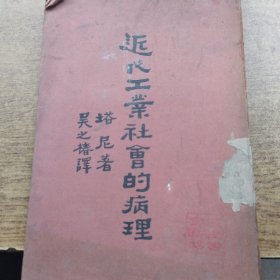 近代工業社會的病理
塔尼著
吳之椿譯